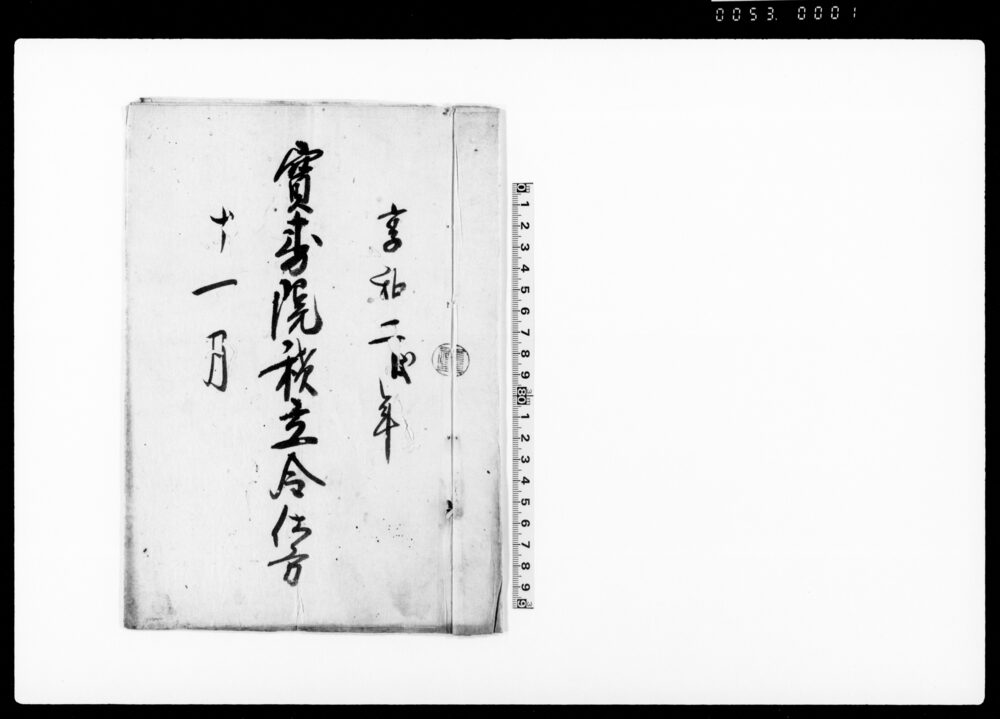 0053. 0001
享和二戌年
寶寿院積立金仕方
十一月
0 1 2 3 4 5 6 7 8 9 1 2 3 4 5 6 7 8 9